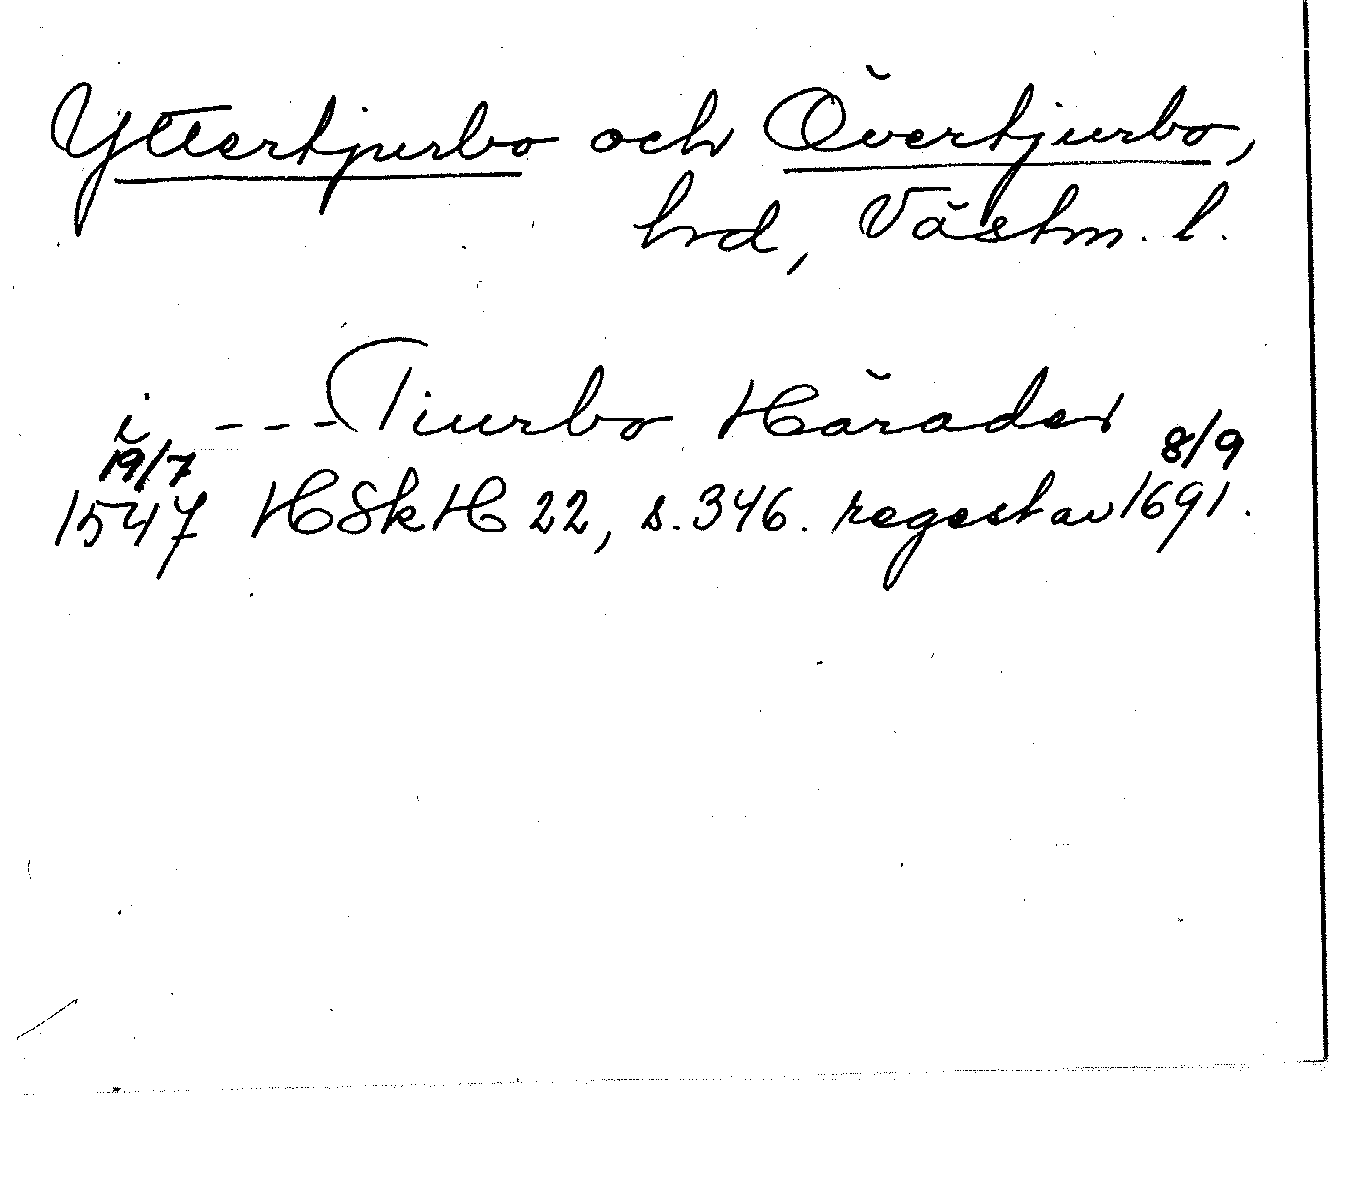 Yttertjurbo och Övertjurbo,
hrd, Västm. l.
i --- Tiurbo Härader
19/7 8/9
1547 HSkH 22, s. 346. regest av 1691.